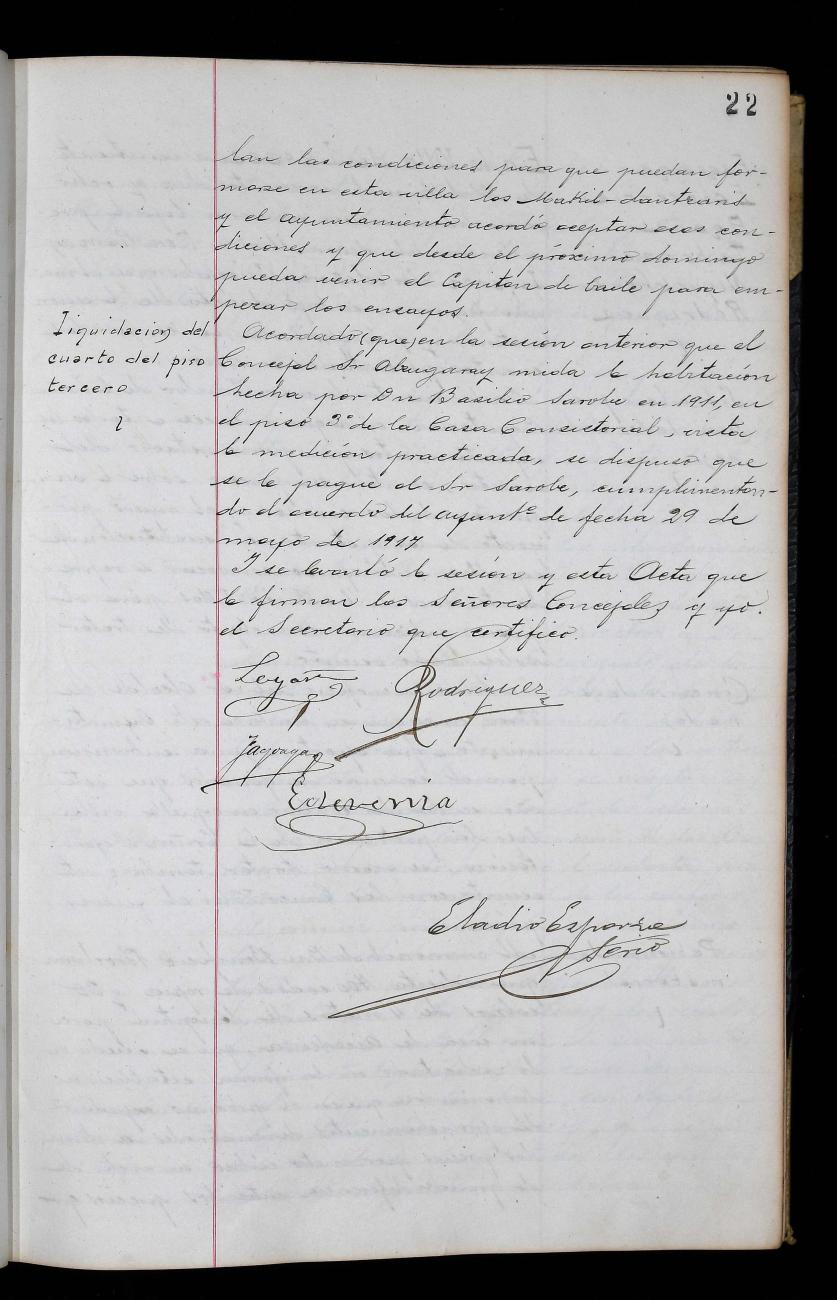 22
lan las condiciones para que puedan for-
marse en esta villa los Makil-dantzaris
y el ayuntamiento acordó aceptar esas con-
diciones y que desde el próximo domingo
pueda venir el Capitan de baile para em-
pezar los ensayos.
Liquidación del
cuarto del piso
tercero
Acordado (que) en la sesión anterior que el
Concejal Sr Abaugaray mida la habitación
hecha por Dn Basilio Sarobe en 1911, en
el piso 3º de la Casa Consistorial, vista
la medición practicada, se dispuso que
se le pague al Sr Sarobe, cumplimentan-
do el acuerdo del ayuntº de fecha 29 de
mayo de 1917
Y se levantó la sesión y esta Acta que
la firman los Señores Concejales y yo.
el Secretario que certifico.
Rodriguez
Echeverria
Eladio Esparza
Serio